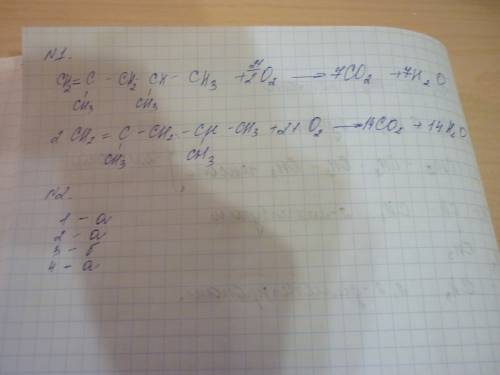 N1.
CH2=C - CH2 - CH - CH3 + 21/2 O2 → 7CO2 + 7H2O
CH3 CH3
2 CH2 = C - CH2 - CH - CH3 + 21 O2 → 14CO2 + 14H2O
CH3 CH3
N2.
1 - а
2 - а
3 - б
4 - а